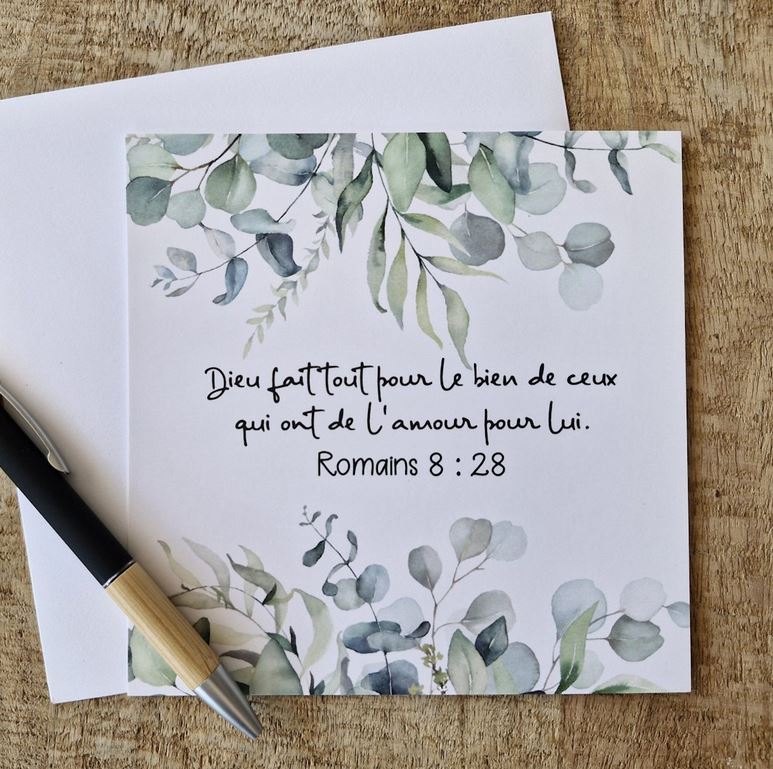 Dieu fait tout pour le bien de ceux
qui ont de l'amour pour lui.
Romains 8 : 28